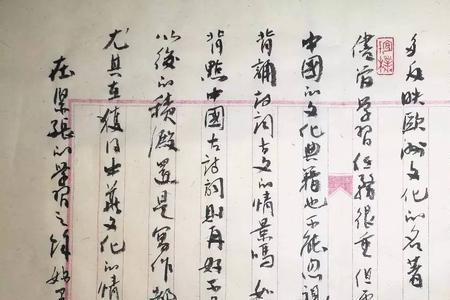 多反映欧洲文化的名著
儘管学習任務很重但
中國的文化典籍也不能忽視
背誦诗詞古文的情景嗎如
背點中國古詩詞則再好
以後的積澱還是寫作都
尤其在獲得中華文化的情
在緊張的学習之餘如